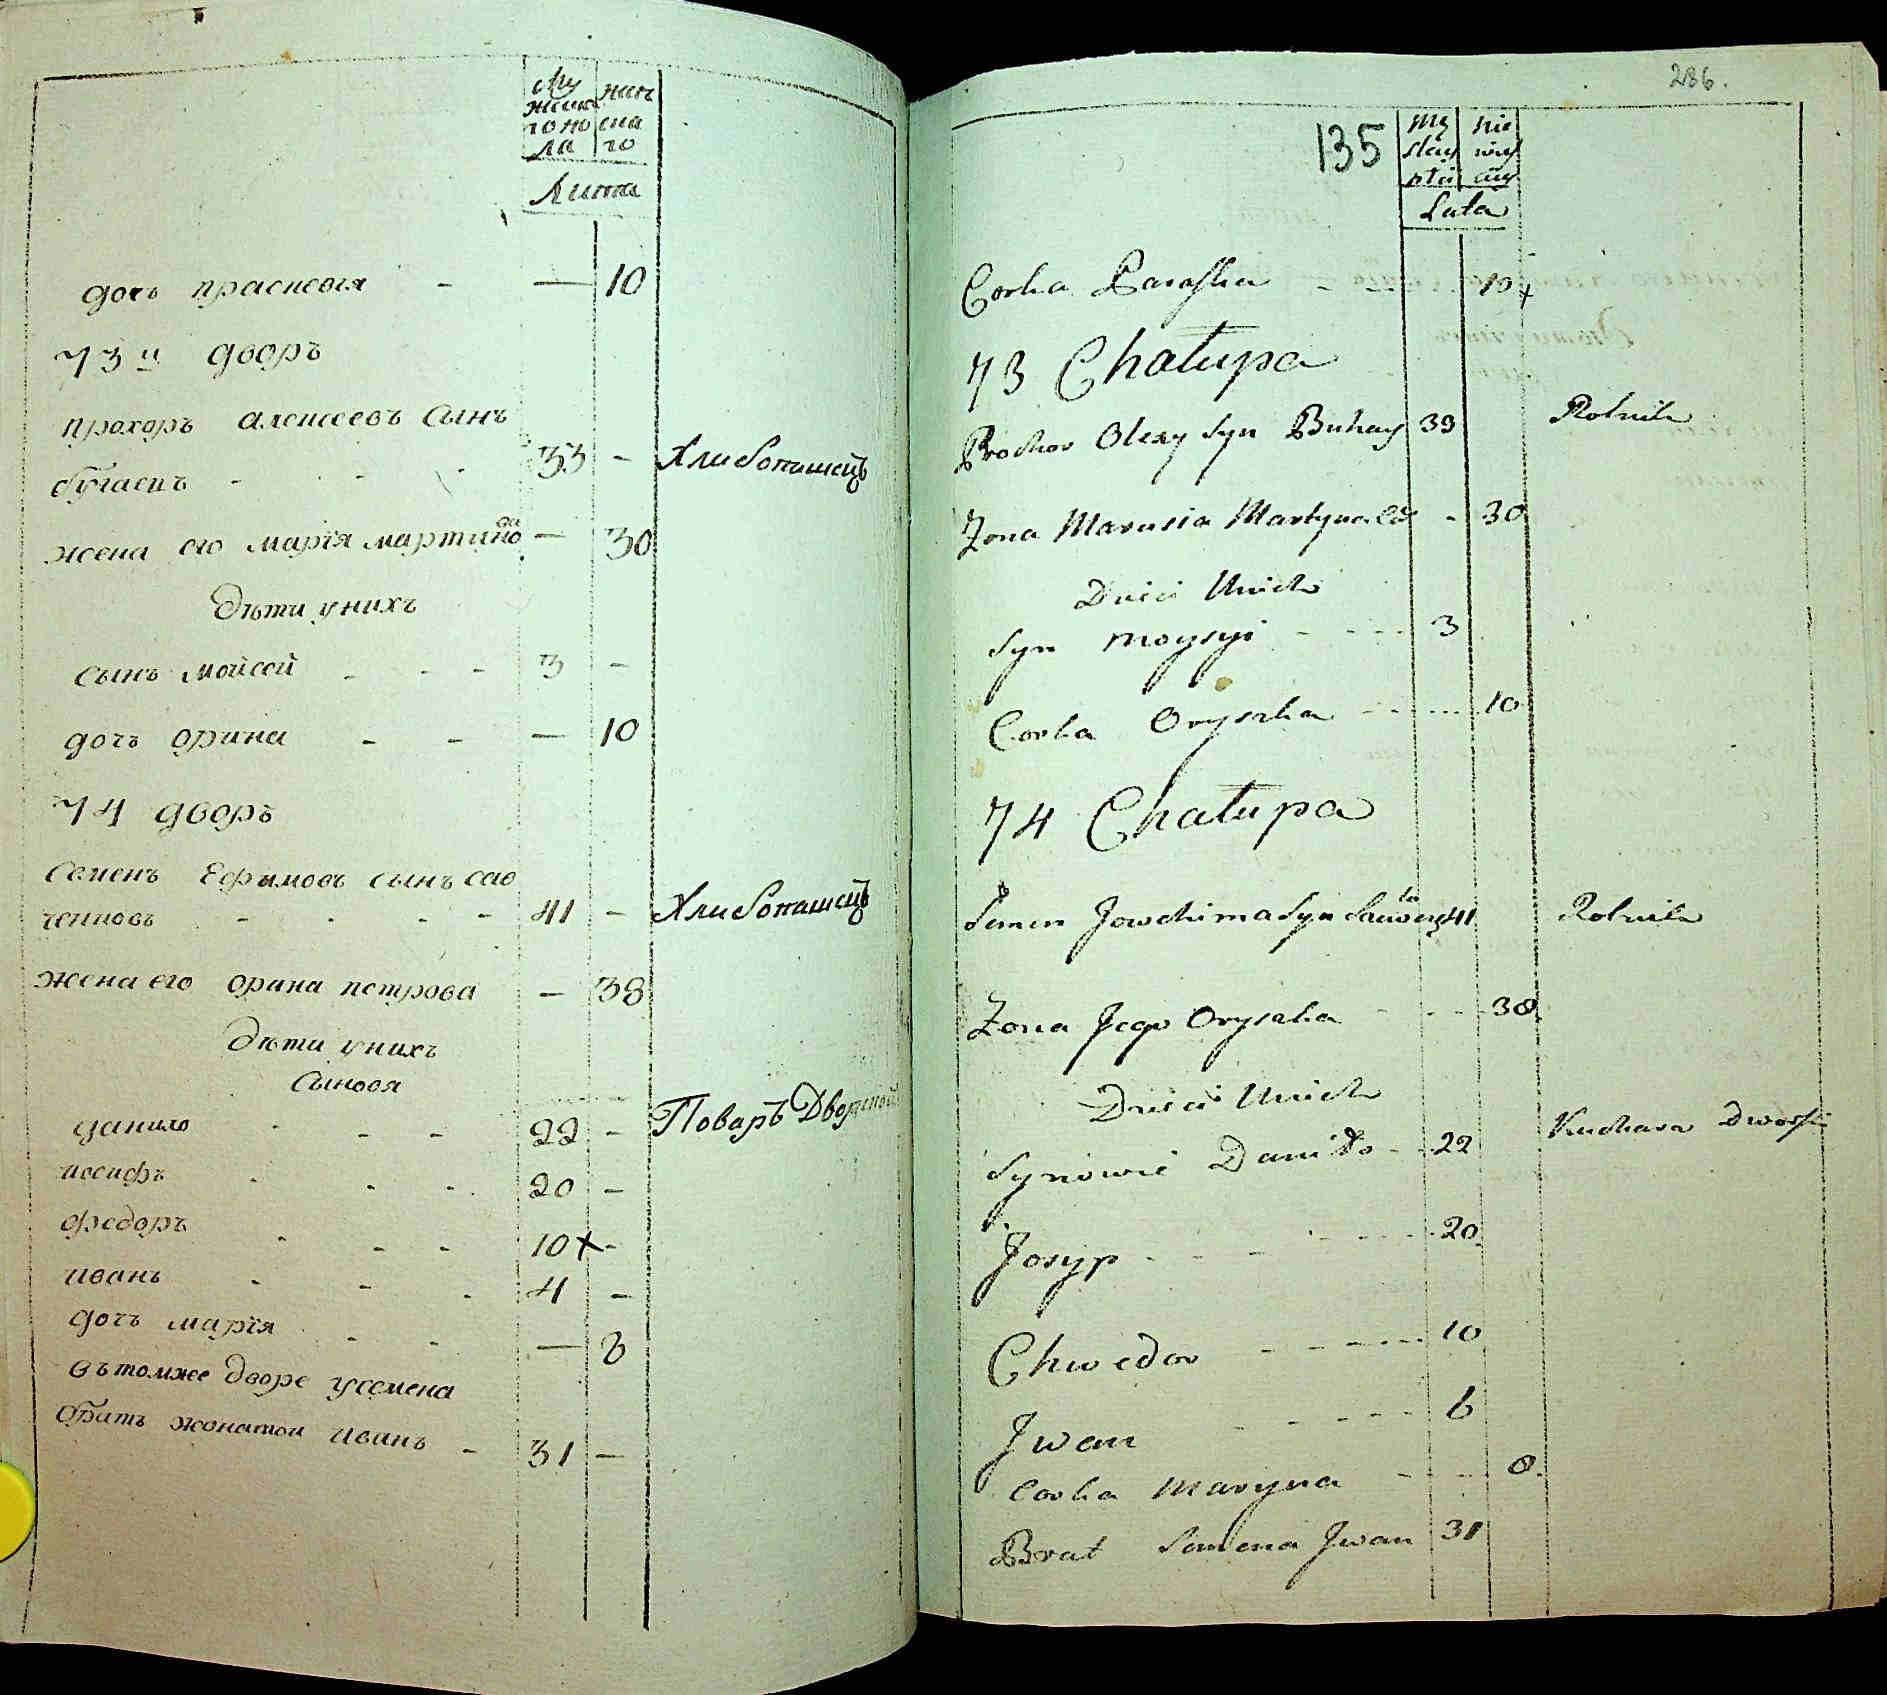 Му жеска го по ла
жен ска го
Лита
дочь праскевїя - — 10
73 й дворъ
прохоръ алексеевъ сынъ
бугаецъ - - - 33 - Хлибопашецъ
жена его марїя мартинова — 30
Дѣти унихъ
сынъ мойсей - - - 3 -
дочь орина - - — 10
74 дворъ
семенъ Ефимовъ сынъ сав
ченковъ - - - - 41 - Хлибопашецъ
жена его орина петрова - 38
Дѣти унихъ
сыновя
данило - - - 22 - Поваръ Дворской
иосифъ - - - 20 -
федоръ - - - 10 + -
иванъ - - - 4 -
дочь марїя - - — 8
вътомже дворе усемена
братъ жонатой иванъ - 31 -
286.
135
Lata
Corka Paraska - - - 10 +
73 Chałupa
Prochor Olexy Syn Buhay 33 Rolnik
Zona Marusia Martyna - 30
Dzieci Unich
Syn Moysyi - - - - 3
Corka Oryszka - - - - 10
74 Chałupa
Semen Jowchima Syn 41 Rolnik
Zona Jego Oryszka - - - 38
Dzieci Unich
Synowie Daniło - - 22 Kuchara Dworski
Josyp - - - - - - 20
Chwedor - - - - 10
Jwan - - - - 6
Corka Maryna - - - 8
Brat Semena Jwan 31